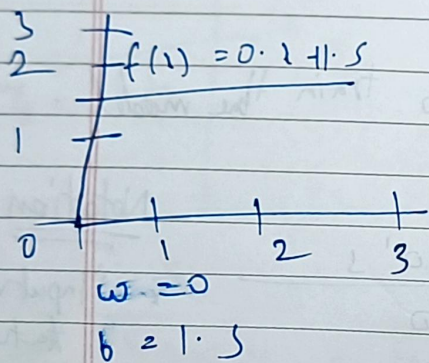 3
2 f(x) = 0.x+1.5
1
0 1 2 3
w = 0
b = 1.5